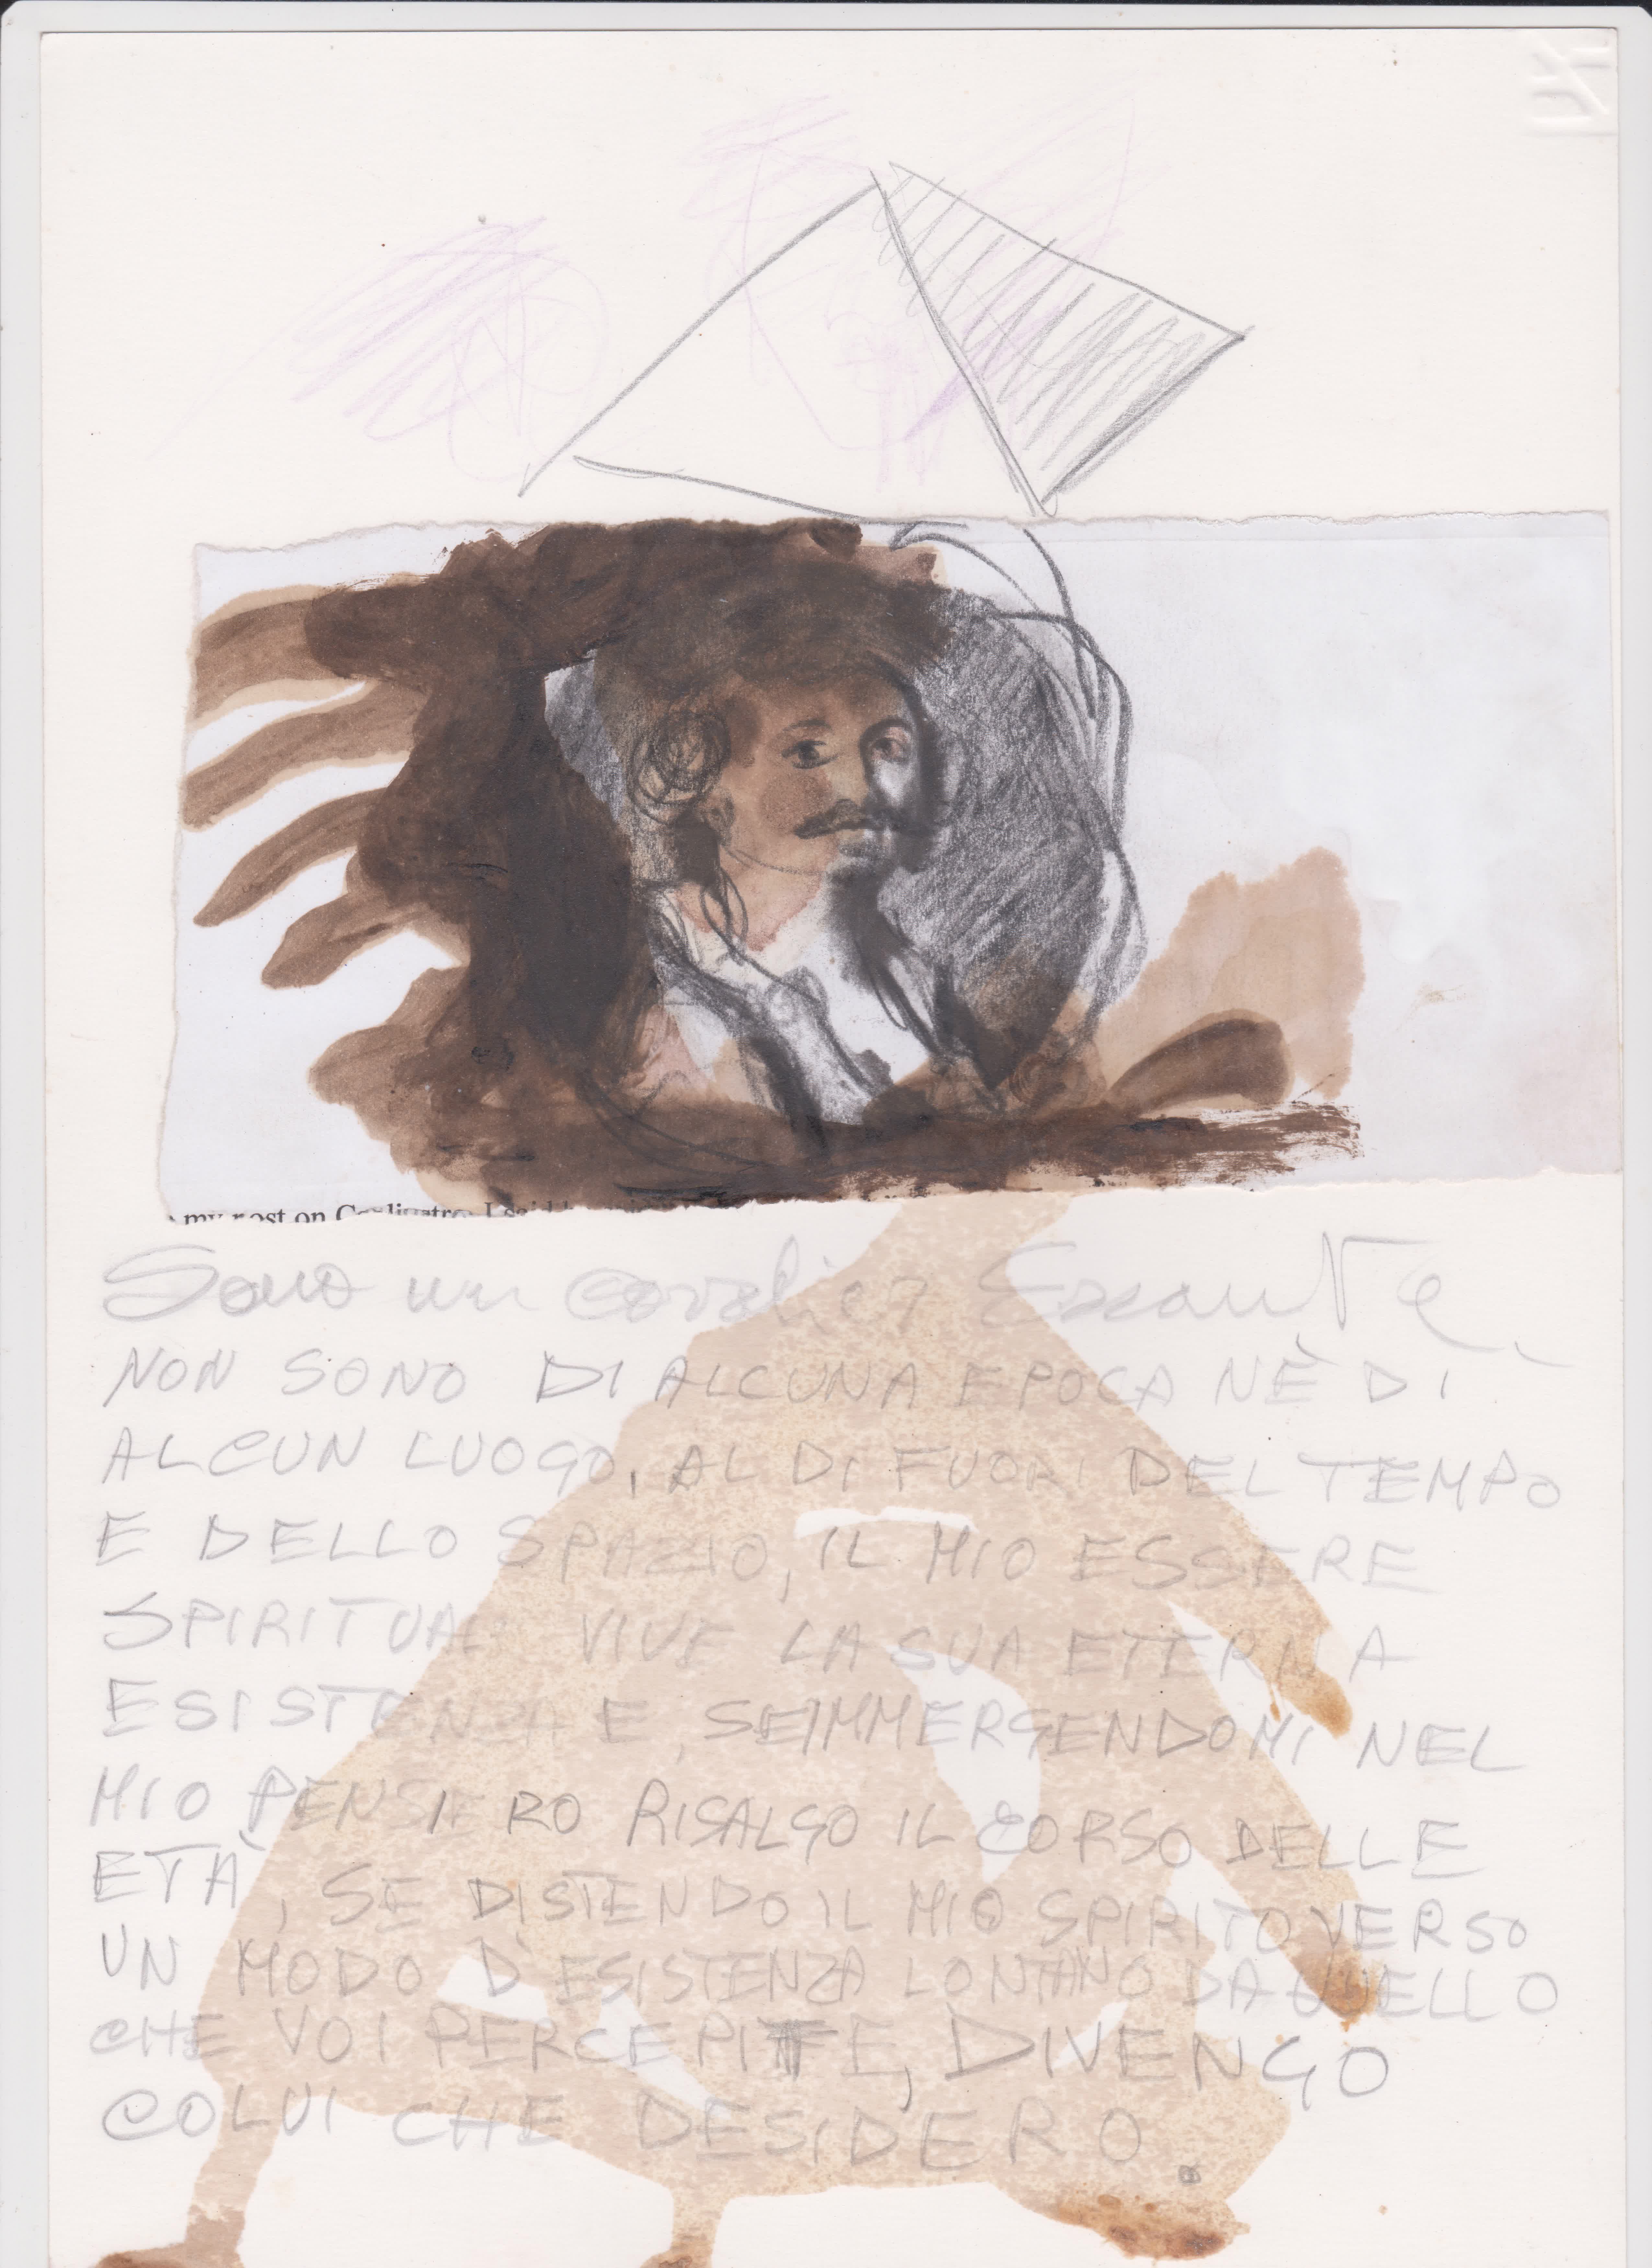 my post on Cagliostro I said
Sono un cavalier Errante
NON SONO DI ALCUNA EPOCA NÈ DI
ALCUN LUOGO, AL DI FUORI DEL TEMPO
E DELLO SPAZIO, IL MIO ESSERE
SPIRITUALE VIVE LA SUA ETERNA
ESISTENZA E, SEIMMERGENDOMI NEL
MIO PENSIERO RISALGO IL CORSO DELLE
ETÀ, SE DISTENDO IL MIO SPIRITO VERSO
UN MODO D'ESISTENZA LONTANO DA QUELLO
CHE VOI PERCEPITE, DIVENGO
COLUI CHE DESIDERO.